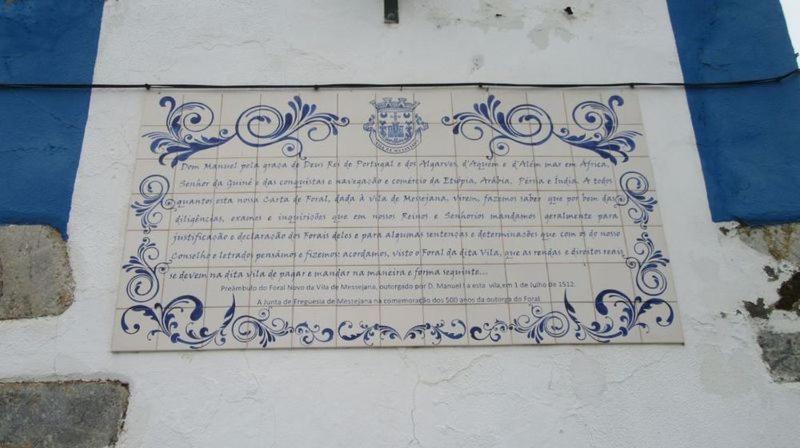 VILA DE MESSEJANA
Dom Manuel pela graça de Deus Rei de Portugal e dos Algarves, d'Aquém e d'Além mar em África,
Senhor da Guiné e das conquistas e navegação e comércio da Etiópia, Arábia, Pérsia e Índia. A todos
quantos esta nossa Carta de Foral, dada à vila de Messejana, virem, fazemos saber que por bem das
diligências, exames e inquirições que em nossos Reinos e Senhorios mandamos geralmente para
justificação e declaração dos Forais deles e para algumas sentenças e determinações que com os do nosso
Conselho e letrados pensámos e fizemos acordamos, visto o Foral da dita Vila, que as rendas e direitos reais
se devem na dita vila de pagar e mandar na maneira e forma seguinte...
Preâmbulo do Foral Novo da Vila de Messejana, outorgado por D. Manuel I a esta vila, em 1 de Julho de 1512.
A Junta de Freguesia de Messejana na comemoração dos 500 anos da outorga do Foral